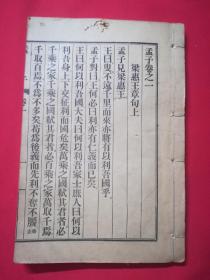 孟子卷之一
梁惠王章句上
孟子見梁惠王
王曰叟不遠千里而來亦將有以利吾國乎
孟子對曰王何必曰利亦有仁義而已矣
王曰何以利吾國大夫曰何以利吾家士庶人曰何以
利吾身上下交征利而國危矣萬乘之國弒其君者必
千乘之家千乘之國弒其君者必百乘之家萬取千焉
千取百焉不為不多矣苟為後義而先利不奪不饜